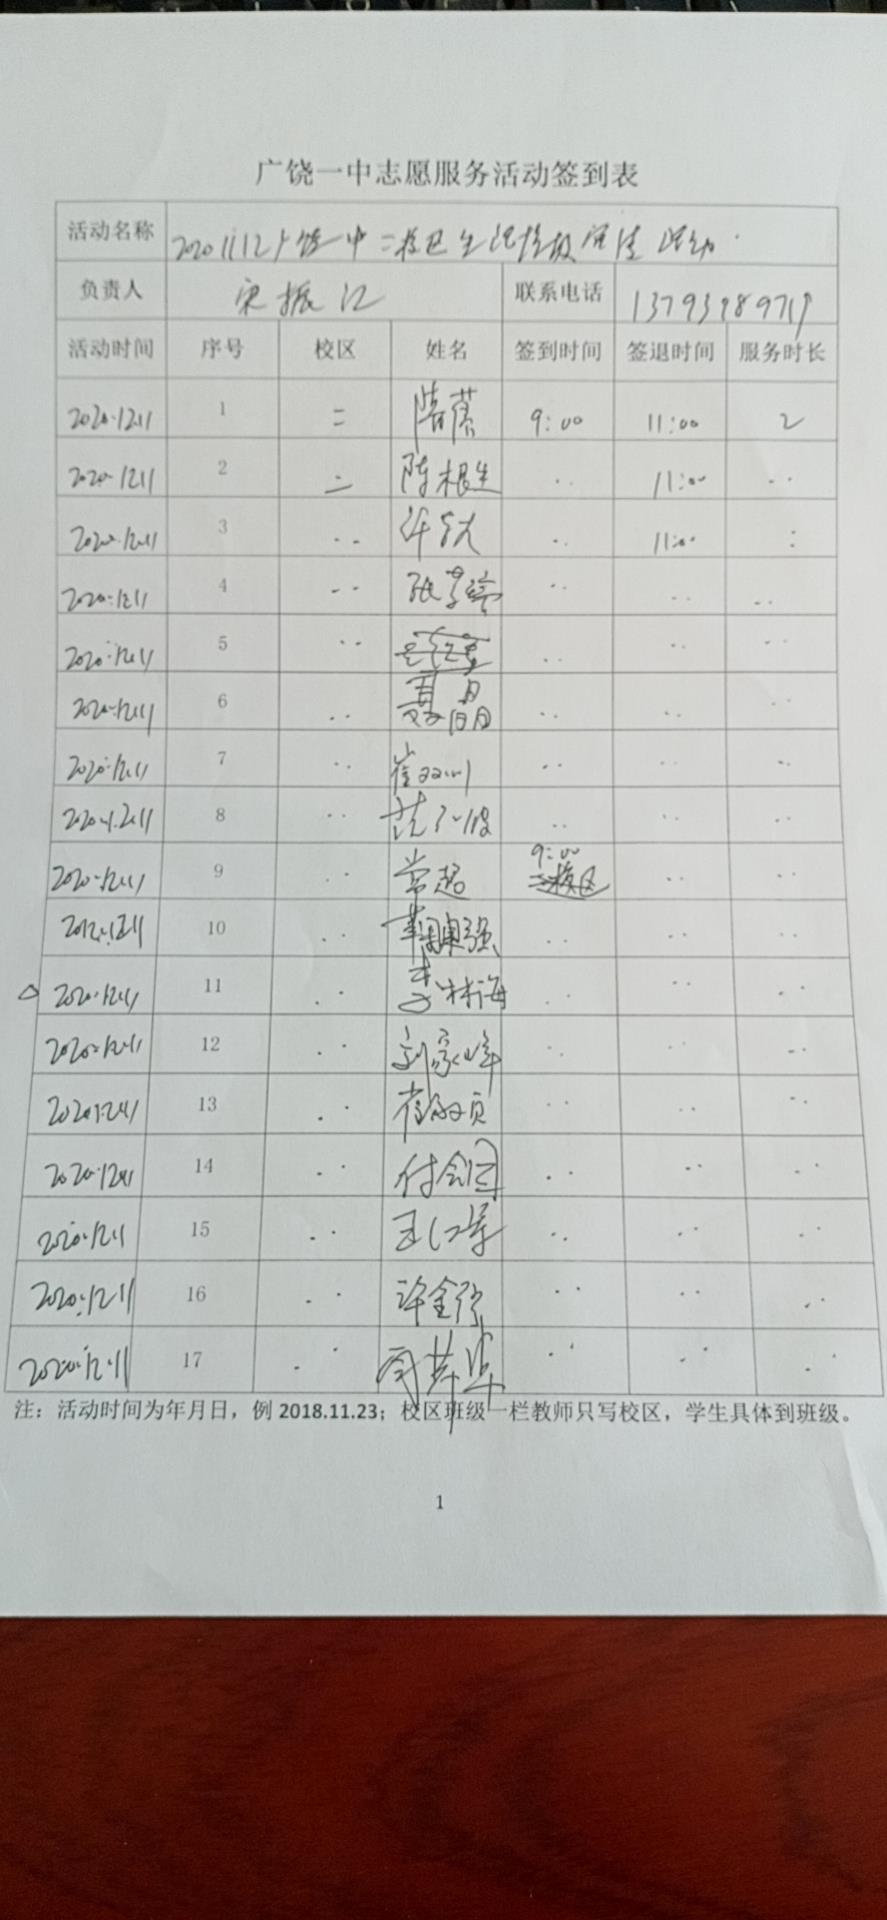 广饶一中志愿服务活动签到表
活动名称 中二校卫生 活动
负责人 宋振江 联系电话
活动时间 序号 校区 姓名 签到时间 签退时间 服务时长
2020.12.11 1 二 隋蕾 9:00 11:00 2
2020.12.11 2 二 陈根生 .. 11:00 ..
2020.12.11 3 .. 许 .. 11:00 :
2020.12.11 4 .. 张 .. .. ..
2020.12.11 5 .. .. .. ..
2020.12.11 6 .. 聂晶 .. .. ..
2020.12.11 7 .. 崔双川 .. .. ..
2020.12.11 8 .. 范 波 .. .. ..
2020.12.11 9 .. 常超 9:00 .. ..
2020.12.11 10 .. 强 .. .. ..
2020.12.11 11 .. 李林海 .. .. ..
2020.12.11 12 .. 刘家峰 .. .. ..
2020.12.11 13 .. 崔 .. .. ..
2020.12.11 14 .. 付会国 .. .. ..
2020.12.11 15 .. 王 .. .. ..
2020.12.11 16 .. 许金 .. .. ..
2020.12.11 17 .. .. .. ..
注：活动时间为年月日，例 2018.11.23；校区班级一栏教师只写校区，学生具体到班级。
1